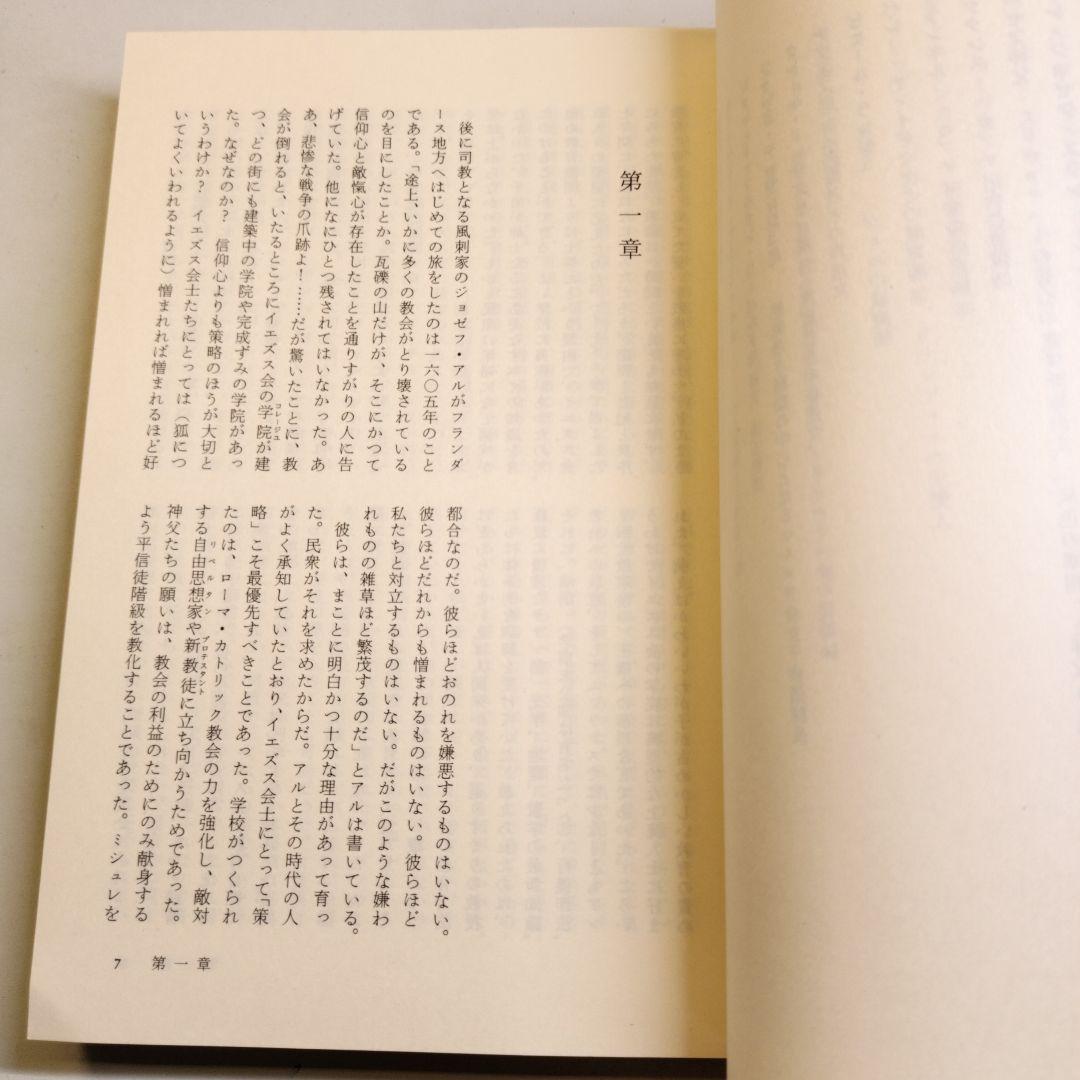 第一章
後に司教となる風刺家のジョゼフ・アルがフランダ
ース地方へはじめての旅をしたのは一六〇五年のこと
である。「途上、いかに多くの教会がとり壊されている
のを目にしたことか。瓦礫の山だけが、そこにかつて
信仰心と敵愾心が存在したことを通りすがりの人に告
げていた。他になにひとつ残されてはいなかった。あ
あ、悲惨な戦争の爪跡よ！……だが驚いたことに、教
会が倒れると、いたるところにイエズス会の学院が建
コレージュ
つ、どの街にも建築中の学院や完成ずみの学院があっ
た。なぜなのか？　信仰心よりも策略のほうが大切と
いうわけか？　イエズス会士たちにとっては（狐につ
いてよくいわれるように）憎まれれば憎まれるほど好
都合なのだ。彼らほどおのれを嫌悪するものはいない。
彼らほどだれからも憎まれるものはいない。彼らほど
私たちと対立するものはいない。だがこのような嫌わ
れものの雑草ほど繁茂するのだ」とアルは書いている。
彼らは、まことに明白かつ十分な理由があって育っ
た。民衆がそれを求めたからだ。アルとその時代の人
がよく承知していたとおり、イエズス会士にとって「策
略」こそ最優先すべきことであった。学校がつくられ
たのは、ローマ・カトリック教会の力を強化し、敵対
する自由思想家や新教徒に立ち向かうためであった。
リベルタン
プロテスタント
神父たちの願いは、教会の利益のためにのみ献身する
よう平信徒階級を教化することであった。ミシュレを
7　第一章